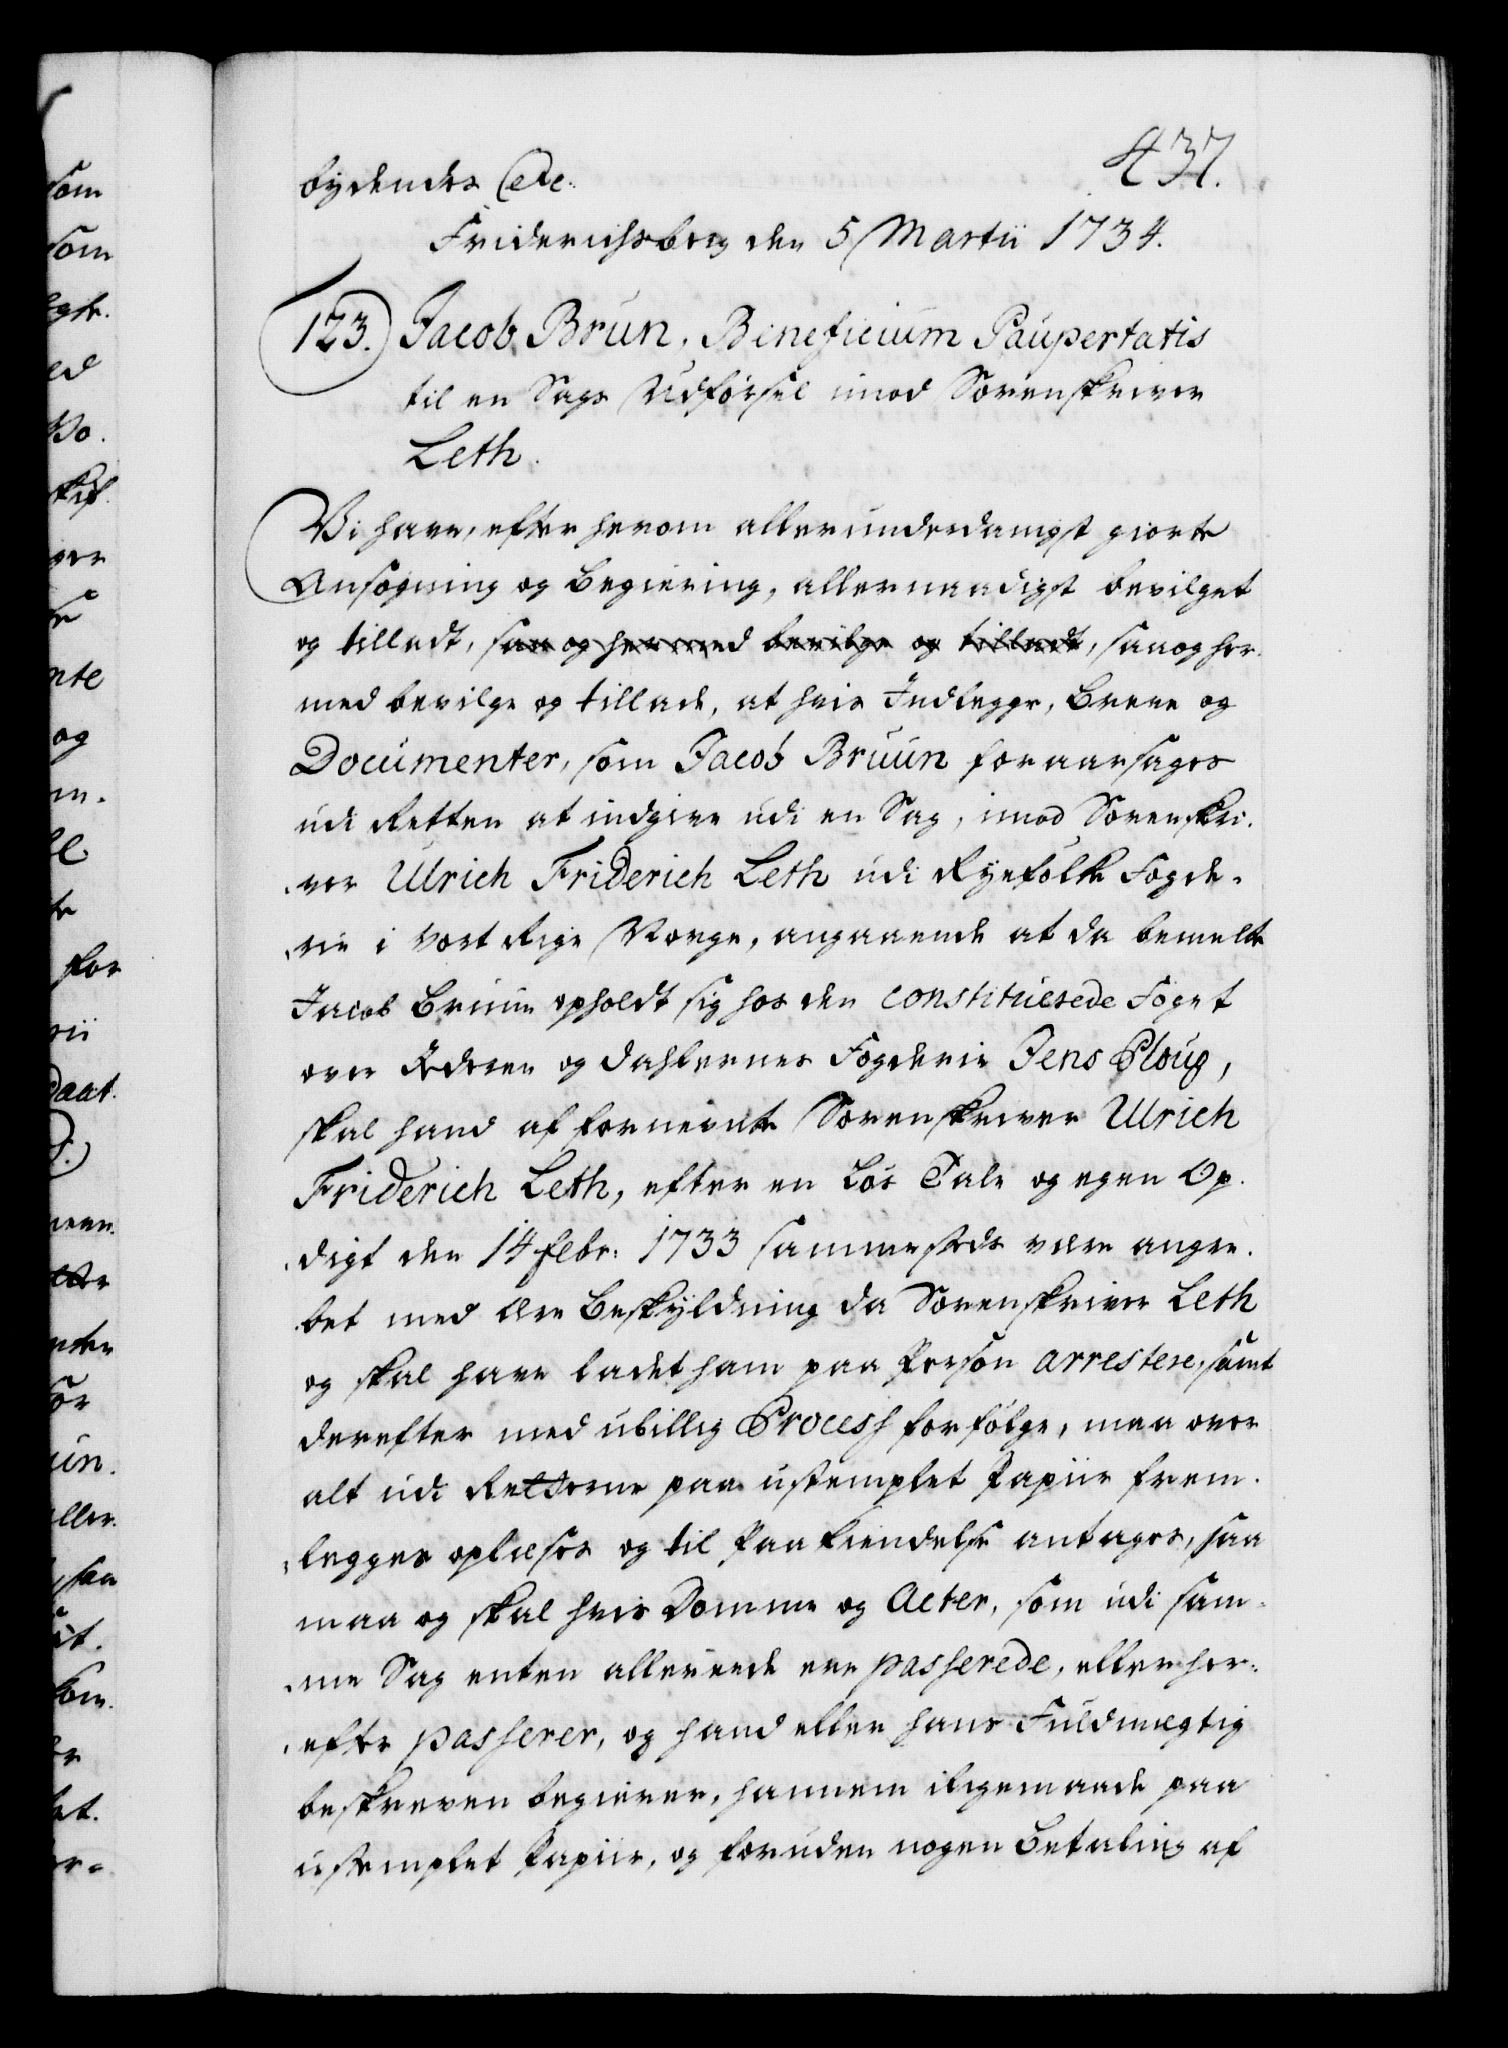 437.
bydendes Etc.
Friderichsberg den 5 Martii 1734.
123. Jacob Brun, Beneficium Paupertatis
til en Sags Udførsel imod Sorenskriver
Leth.
Vi have, efter herom allerunderdanigst giorte
Ansøgning og Begiering, allernaadigst bevilget
og tilladt, saa og hermed bevilge og tilladt, saa og her-
med bevilge og tillade, at hvis Indlegge, Breve og
Documenter, som Jacob Bruun foraarsages
udi Retten at indgive udi en Sag, imod Sorenskri-
ver Ulrich Friderich Leth udi Ryefølke Fogde-
rie i Vort Rige Norge, angaaende at da bemelte
Jacob Bruun opholdt sig hos den constituerede Foget
over Jederen og Dahlernes Fogderie Jens Ploug,
skal hand af fornevnte Sorenskriver Ulrich
Friderich Leth, efter en Løs Tale og egen Op-
digt den 14 Febr: 1733 sammesteds være angre-
bet med Ære Beskyldning da Sorenskriver Leth
og skal have ladet ham paa Person arrestere, samt
derefter med ubillig Process forfølge, maa over
alt udi Retterne paa ustemplet Papiir frem-
legges oplæses og til Paakiendelse antages, saa
maa og skal hvis Domme og Acter, som udi sam-
me Sag enten allereede ere passerede, eller her-
efter passerer, og hand eller hans Fuldmægtig
beskreven begierer, hannem iligemaade paa
ustemplet Papiir, og foruden nogen Betaling af
som
som
ed
nte
og
for
rii
daat.
un.
aller.
saa